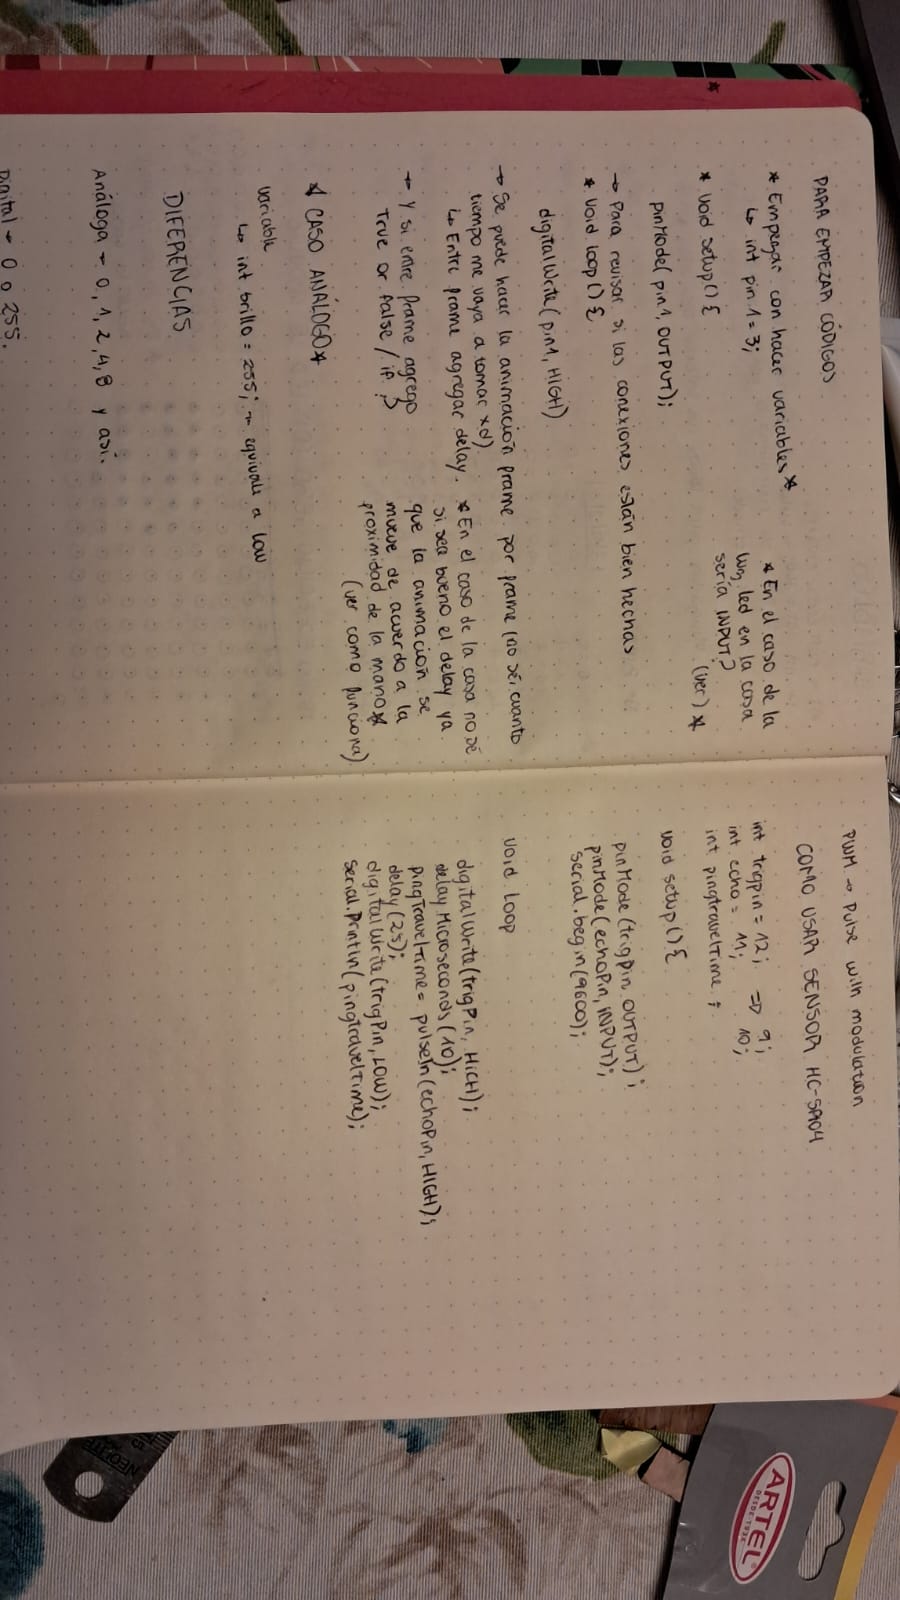 PARA EMPEZAR CÓDIGOS
* Empezar con hacer variables *
↳ int pin1 = 3;
* void setup() {
pinMode( pin1, OUTPUT);
* En el caso de la
led en la casa
sería INPUT?
(ver) *
→ Para revisar si las conexiones están bien hechas
* void loop() {
digitalWrite( pin1, HIGH)
→ Se puede hacer la animación frame por frame (no sé, cuanto
tiempo me vaya a tomar xd)
↳ Entre frame agregar delay.
→ Y si entre frame agrego
True or False / if ?
* En el caso de la casa no sé
si sea bueno el delay ya
que la animación se
mueve de acuerdo a la
proximidad de la mano *
(ver como funciona)
* CASO ANÁLOGO *
variable
↳ int brillo = 255; → equivale a low
DIFERENCIAS
Análoga → 0, 1, 2, 4, 8 y así.
Digital → 0 o 255.
PWM → Pulse with modulation
COMO USAR SENSOR HC-SR04
int trigpin = 12; ⇒ 9;
int echo = 11; 10;
int pingtravelTime;
void setup() {
pinMode (trigPin, OUTPUT);
pinMode(echoPin, INPUT);
Serial.begin(9600);
void loop
digitalWrite(trigPin, HIGH);
delayMicroseconds (10);
pingTravelTime = pulseIn (echoPin, HIGH);
delay (25);
digitalWrite (trigPin, LOW);
Serial.Println( pingtravelTime);
ARTEL
DESDE 1932